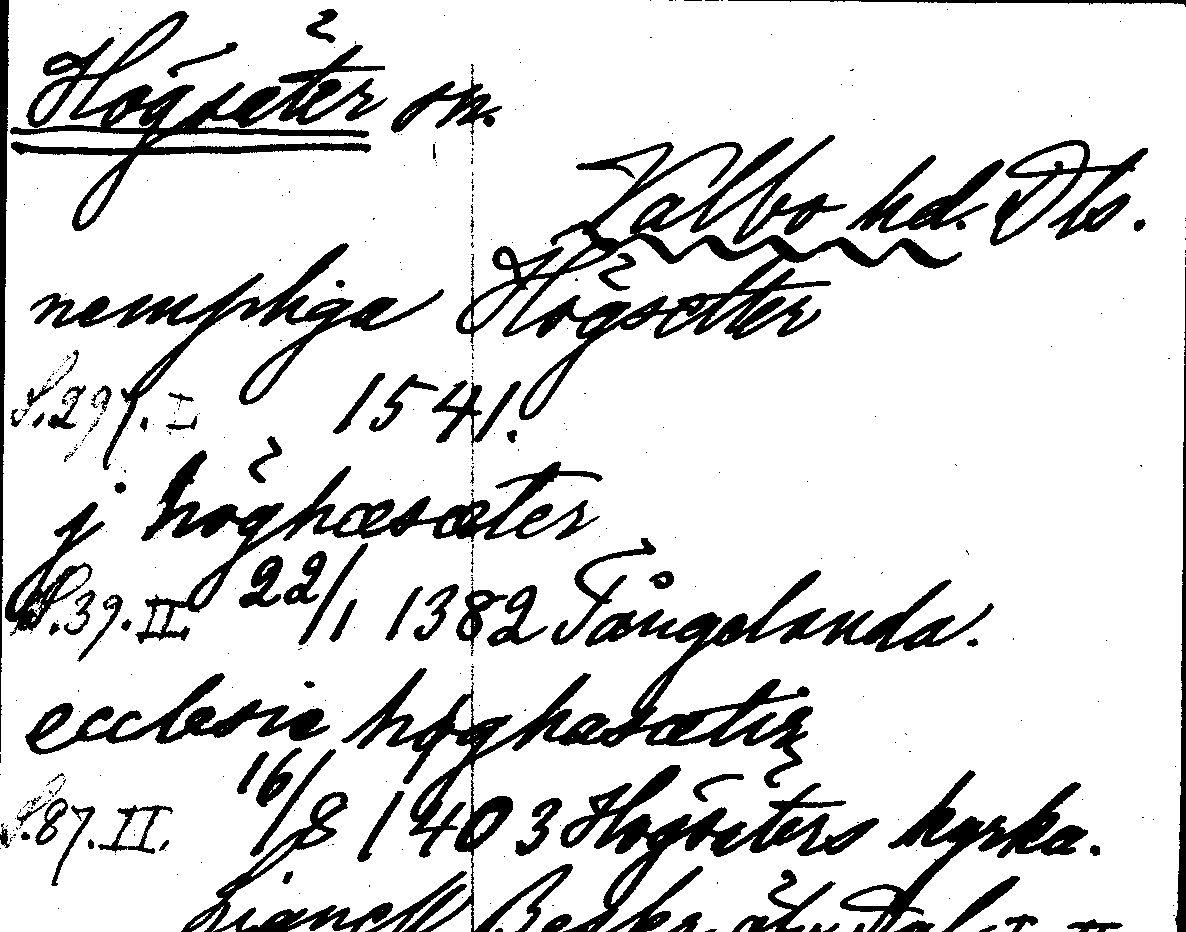 Högsäter sn.
Valbo hd. Dls.
nempliga Högsetter
S.297.I 1541.
j höghæsæter
S.39.II. 22/1 1382 Tångelanda.
ecclesia høghasætir
S.87.II. 16/8 1403 Högsäters kyrka.
Lignell Beskr. öfv. Dal. I. II